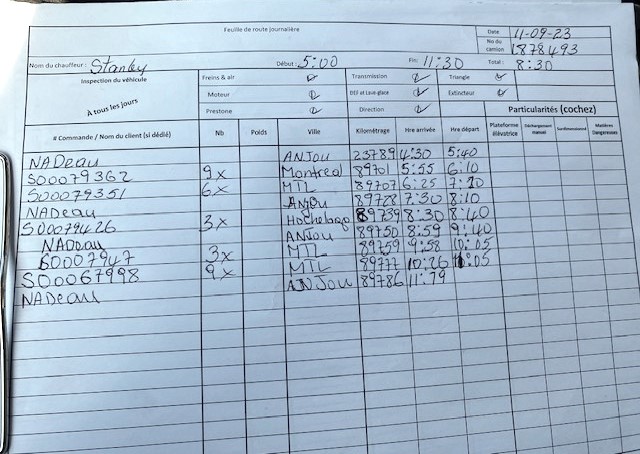 Feuille de route journalière
Date 11-09-23
No du camion 1878493
Nom du chauffeur: Stanley Début: 5:00 Fin: 11:30 Total: 8:30
Inspection du véhicule Freins & air Transmission Triangle
À tous les jours Moteur DEF et Lave-glace Extincteur
Prestone Direction Particularités (cochez)
# Commande / Nom du client (si dédié) Nb Poids Ville Kilométrage Hre arrivée Hre départ Plateforme élévatrice Déchargement manuel Surdimensionné Matières Dangereuses
NADeau ANJou 23789 4:30 5:40
S00079362 9x Montreal 89701 5:55 6:10
S00079351 6x MTL 89707 6:25 7:20
NADeau Anjou 89728 7:30 8:10
S00079426 3x Hochelaga 89739 8:30 8:40
NADeau ANJou 89750 8:59 9:40
S0007947 3x MTL 89759 9:58 10:05
S00067998 9x MTL 89777 10:26 11:05
NADeau ANJou 89786 11:79